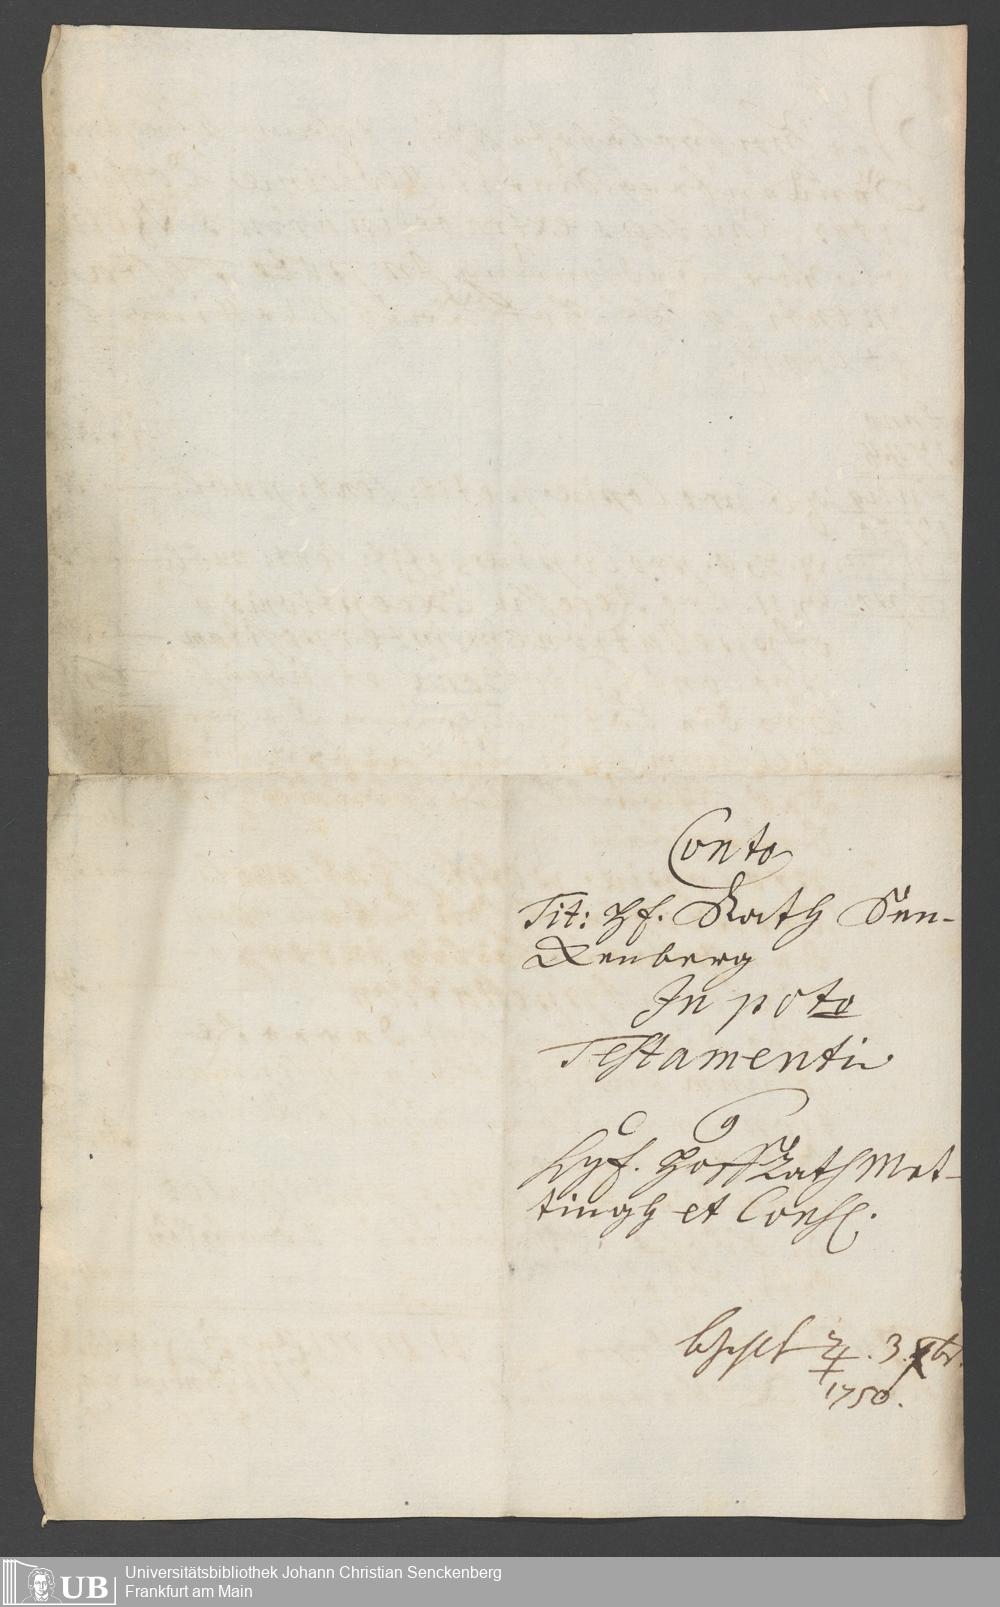 Conto
Tit: H. Rath Sen-
kenberg
In pcto
Testamenti
HofRath Met-
tingh et Cons.
bezhlt ♃. 3. Xbr.
1750.
Universitätsbibliothek Johann Christian Senckenberg
Frankfurt am Main
UB